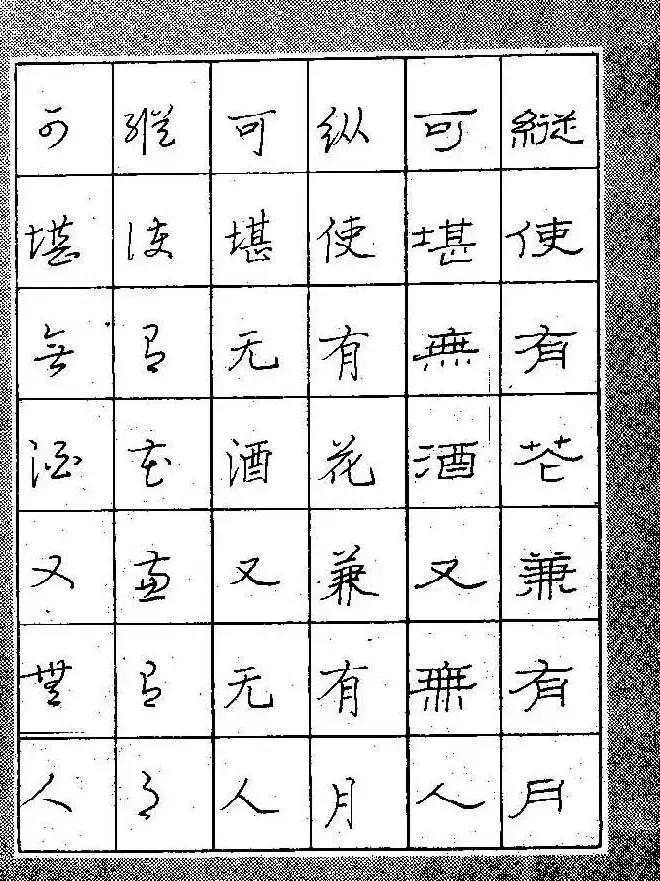 縱使有花兼有月
可堪無酒又無人
纵使有花兼有月
可堪无酒又无人
縱使有花兼有月
可堪無酒又無人